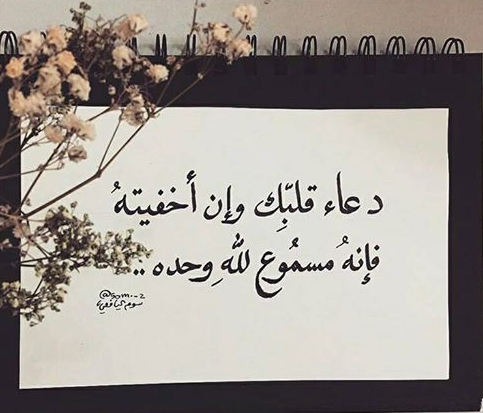 دعاء قلبِّك وإن أخفيتهُ
فإنهُ مسمُوع للهِ وحده ..
@som--2